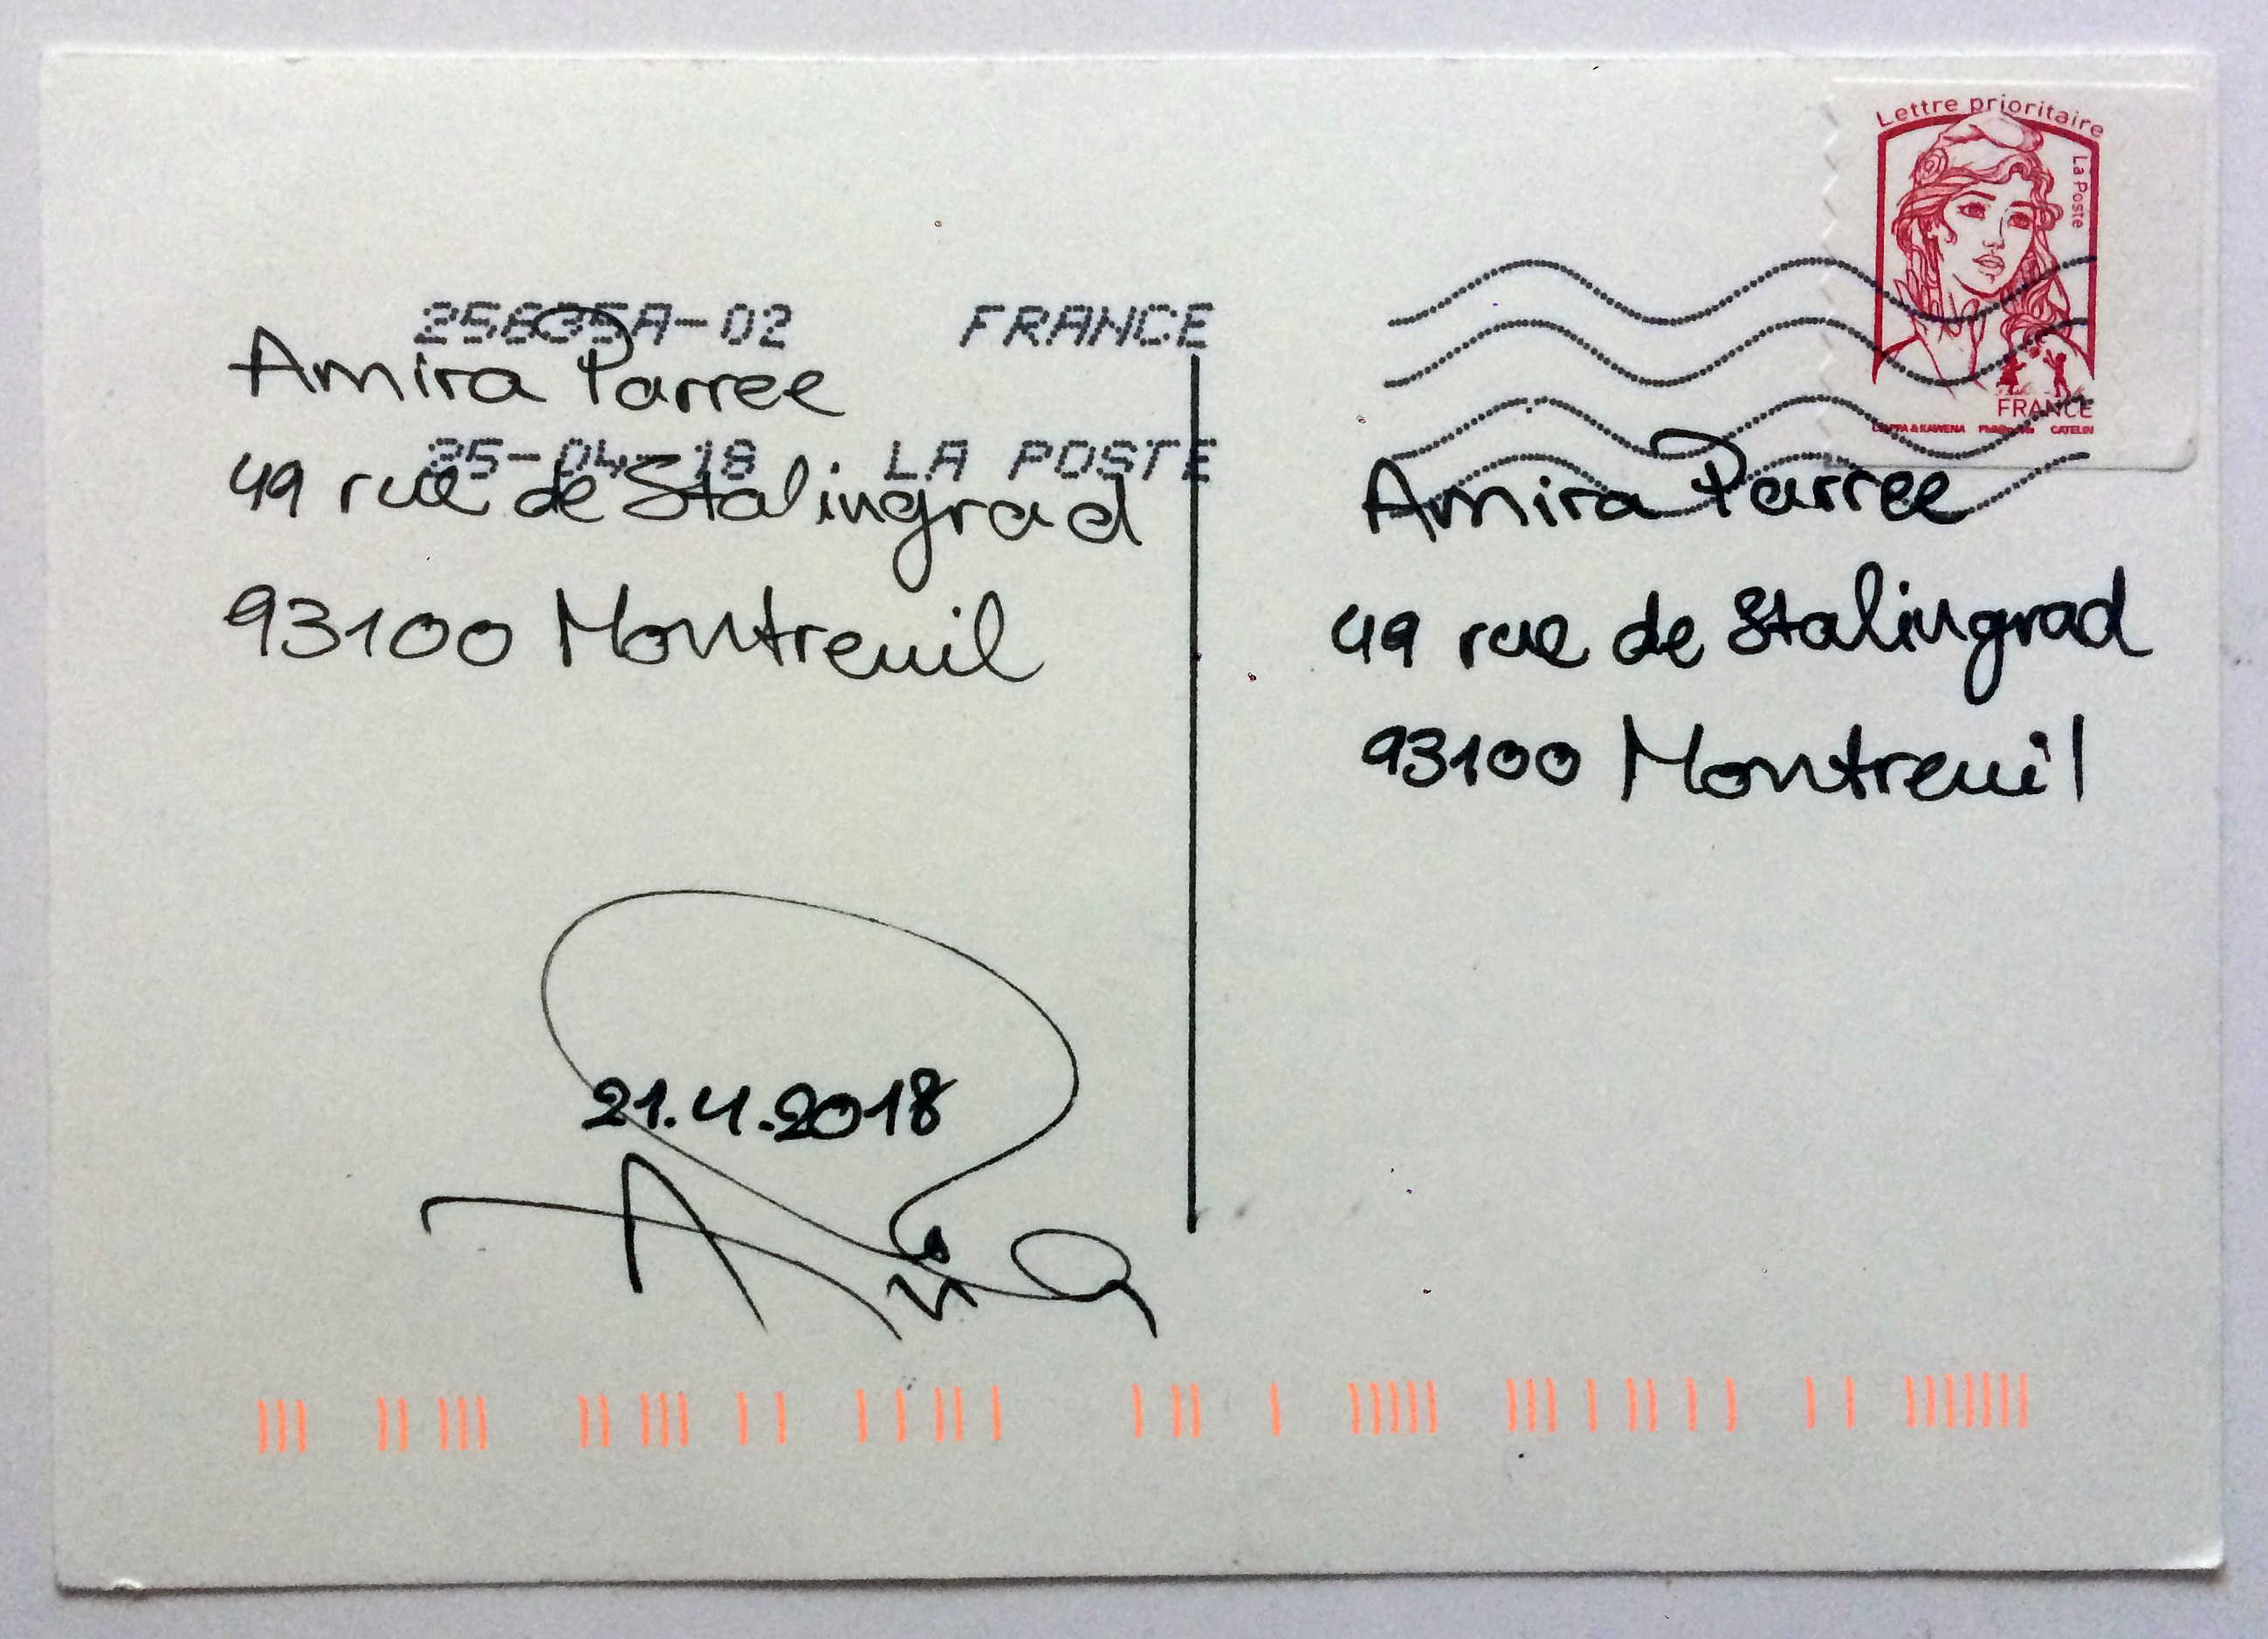 Lettre prioritaire
La Poste
FRANCE
25635A-02 FRANCE
25-04-18 LA POSTE
Amira Parree
49 rue de Stalingrad
93100 Montreuil
21.4.2018
Amira Parree
49 rue de Stalingrad
93100 Montreuil